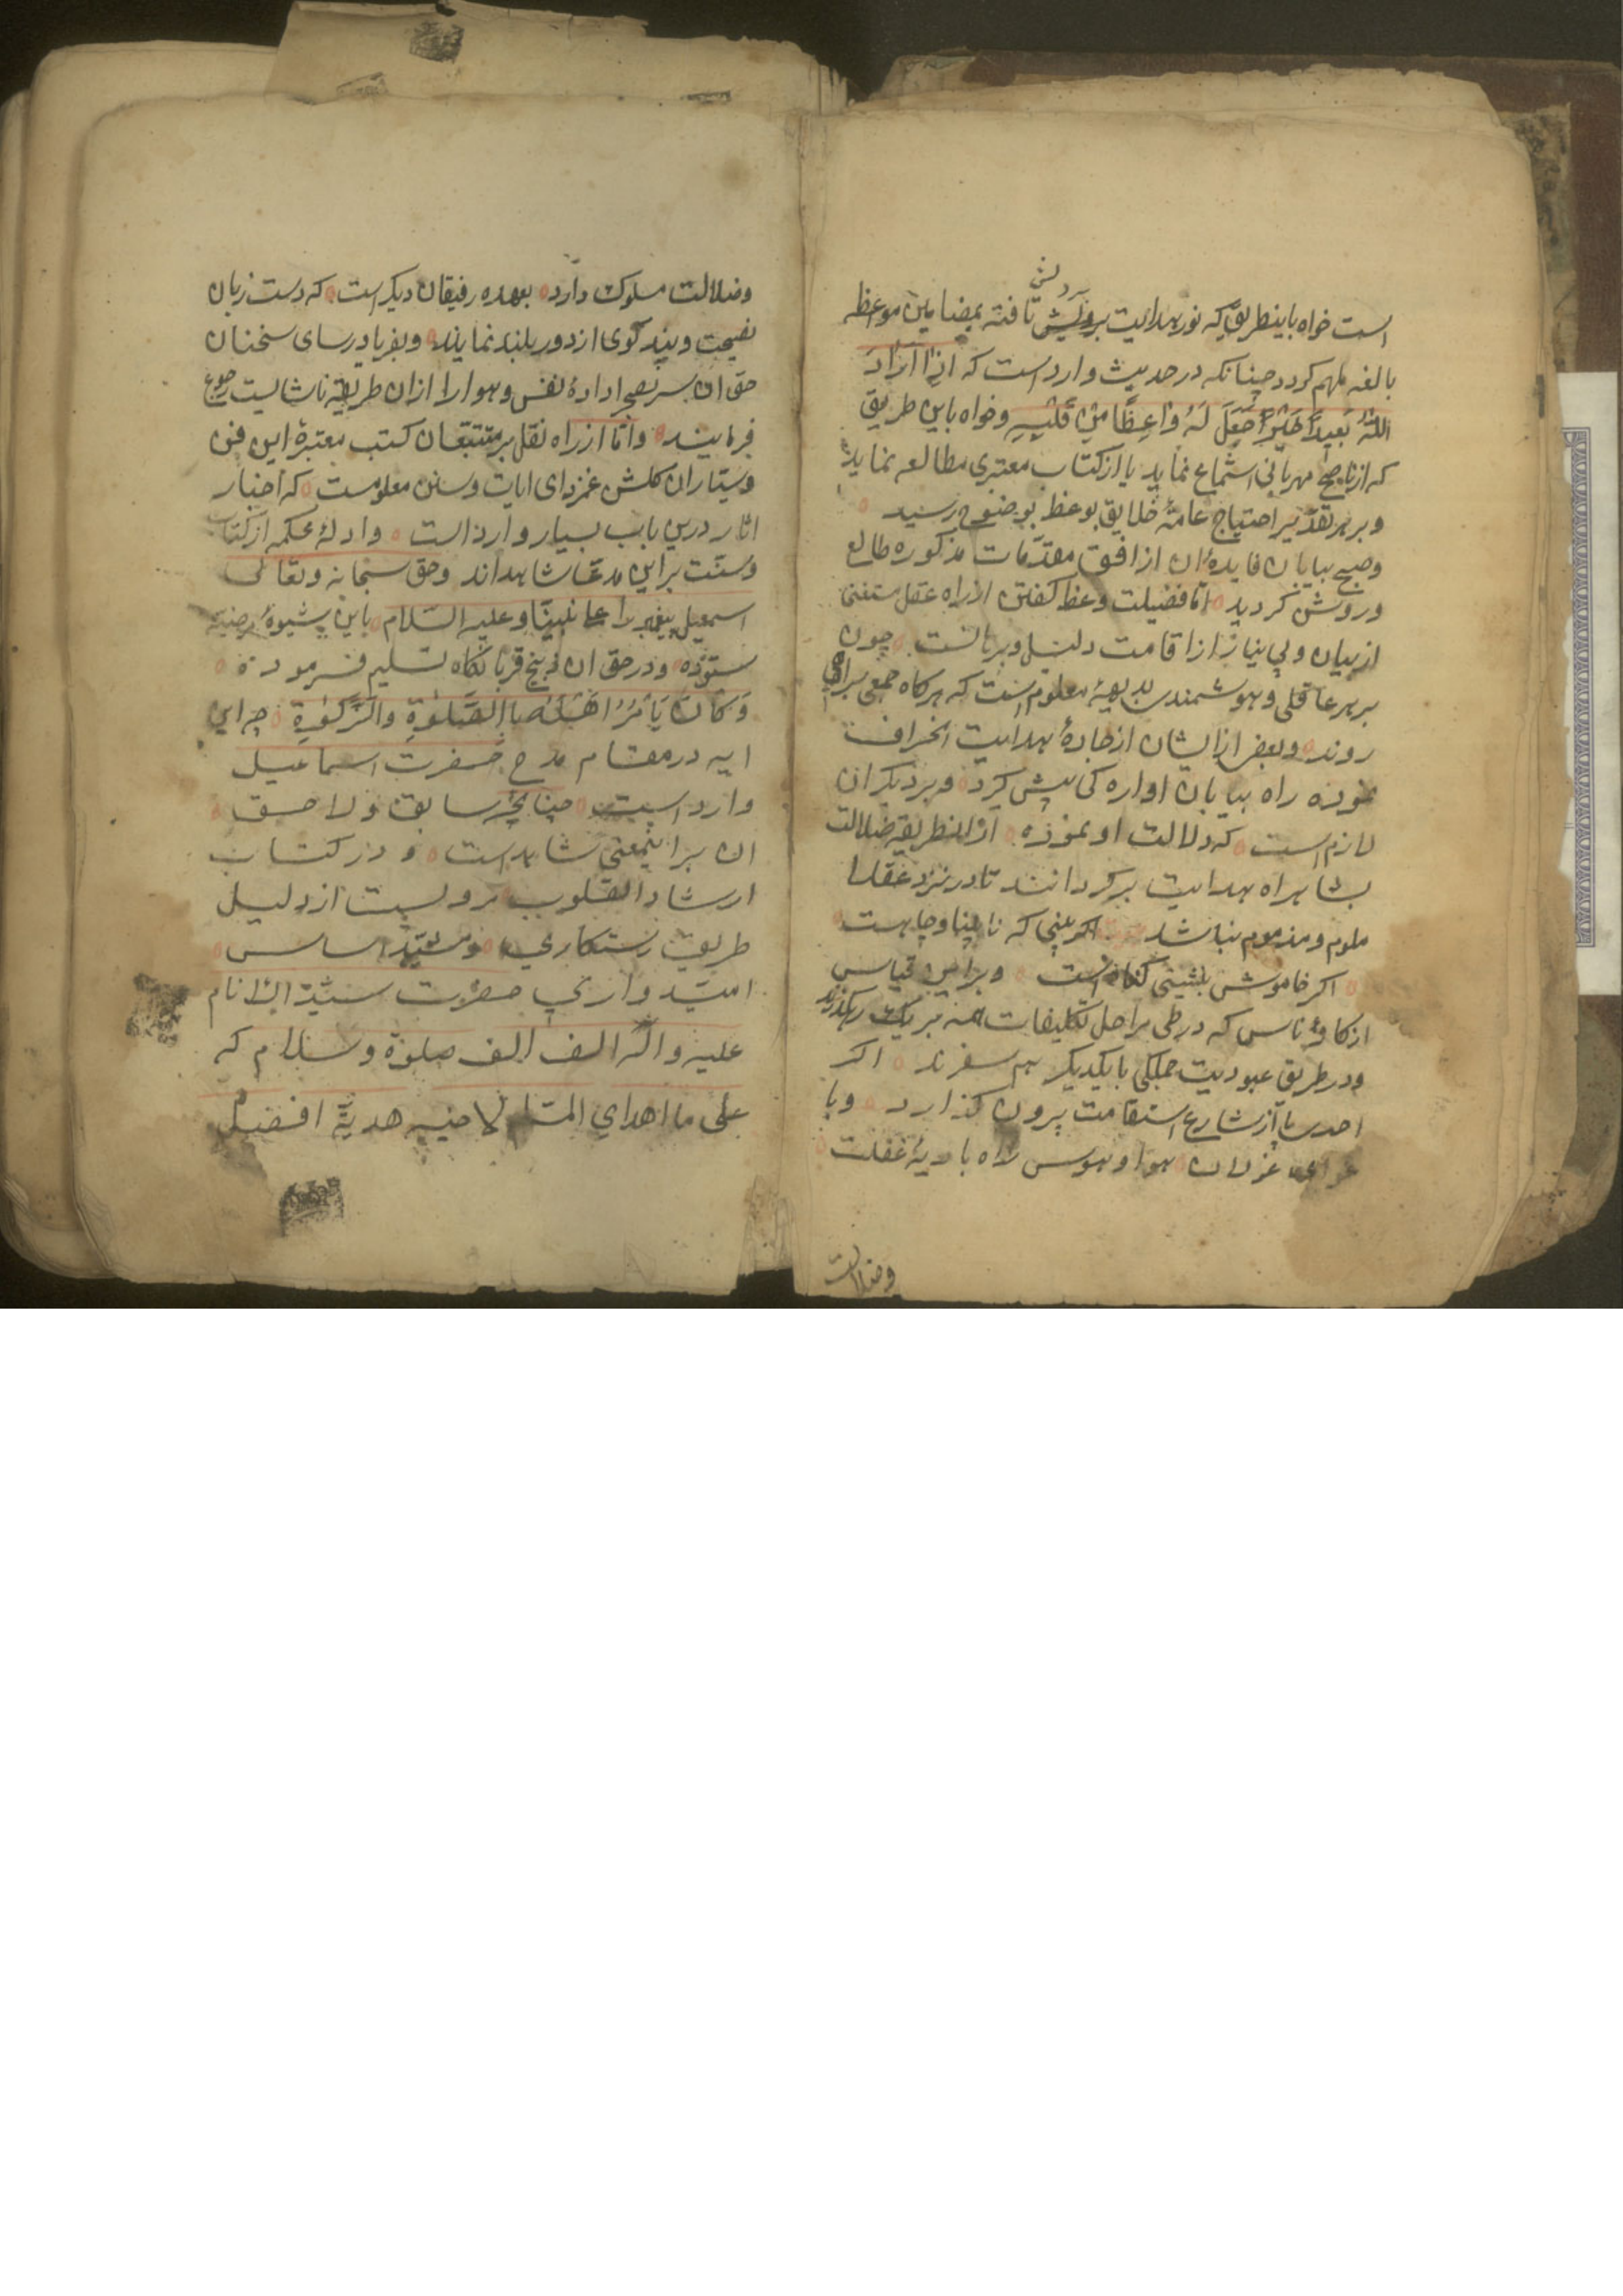 است خواه باینطریق که نور هدایت بر دلش تافته بمضامین مواعظ
بالغه ملهم کردد چنانکه در حدیث وارد است که اِذا اَرادَ
اللّٰهُ بَعبدٍ خَیْرًا جَعَلَ لَهُ وٰاعِظًا مِنْ قَلْبِهِ وخواه باین طریق
که از ناصح مهربانی استماع نماید یا از کتاب معتبری مطالعه نماید
وبر هر تقدیر احتیاج عامهٔ خلایق بوعظ بوضوح رسید
وصبح بیابان فایدهٔ ان از افق مقدّمات مذکوره طالع
وروشن کردید امّا فضیلت وعظ کفتن از راه عقل مستغنی
از بیان وبی نیاز از اقامت دلیل وبرهانست چون
بر هر عاقلی وهوشمندی بدیهیهٔ معلوم است که هرکاه جمعی براهی
روند وبعضی از ایشان از جادهٔ هدایت انحراف
نموده راه بیابان اواره کی پیش کیرد وبر دیکران
لازم است که دلالت او نموده از انطریقه ضلالت
بشاهراه هدایت برکردانند تا در نزد عقلا
ملوم ومذموم نباشد اکر بینی که نابینا وچاهست
اکر خاموش بنشینی کناه است وبراین قیاس
از کافهٔ ناس که در طی مراحل تکلیفات همه بر یک رهکذرند
ودر طریق عبودیت جملکی با یکدیکر هم سفرند اکر
احدی پا از شارع استقامت بیرون کذارد وبا
غولان هوا وهوس راه بادیهٔ غفلت
وضلالت
وضلالت مسلوک دارد بعهده رفیقان دیکر است که دست زبان
نصیحت وپند کوی از دور بلند نمایند وبفریاد رسای سخنان
حق ان سر بصحرا دادهٔ نفس وهوا را از ان طریقهٔ ناشایست رجوع
فرمایند وامّا از راه نقل بر متتبّعان کتب معتبرهٔ این فن
وسیّاران کلشن غمزدای ایات وسنن معلومست که اخبار
اثار درین باب بسیار وارد است وادلهٔ محکمه از کتاب
وسنّت براین مدعا شاهداند وحق سبحانه وتعالی
اسمعیل پیغمبر را علی نبیّنا وعلیه السّلام باین شیوهٔ مرضیه
ستوده ودر حق ان ذبیح قربانکاه تسلیم فرموده
وَکانَ یَأمُرُ اَهْلَهُ بِاالصَّلوٰةِ وَالزَّکوٰةِ چه این
ایه در مقام مدح حضرت اسماعیل
وارد است چنانچه سابق ولاحق
ان براینمعنی شاهد است ودر کتاب
ارشاد القلوب مرویست از دلیل
طریق رستکاری ومشیّد اساس
امیدواری حضرت سیّد الانام
علیه واله الف الف صلوة وسلام که
علی ما اهدای المسلم لاخیه هدیةً افضل